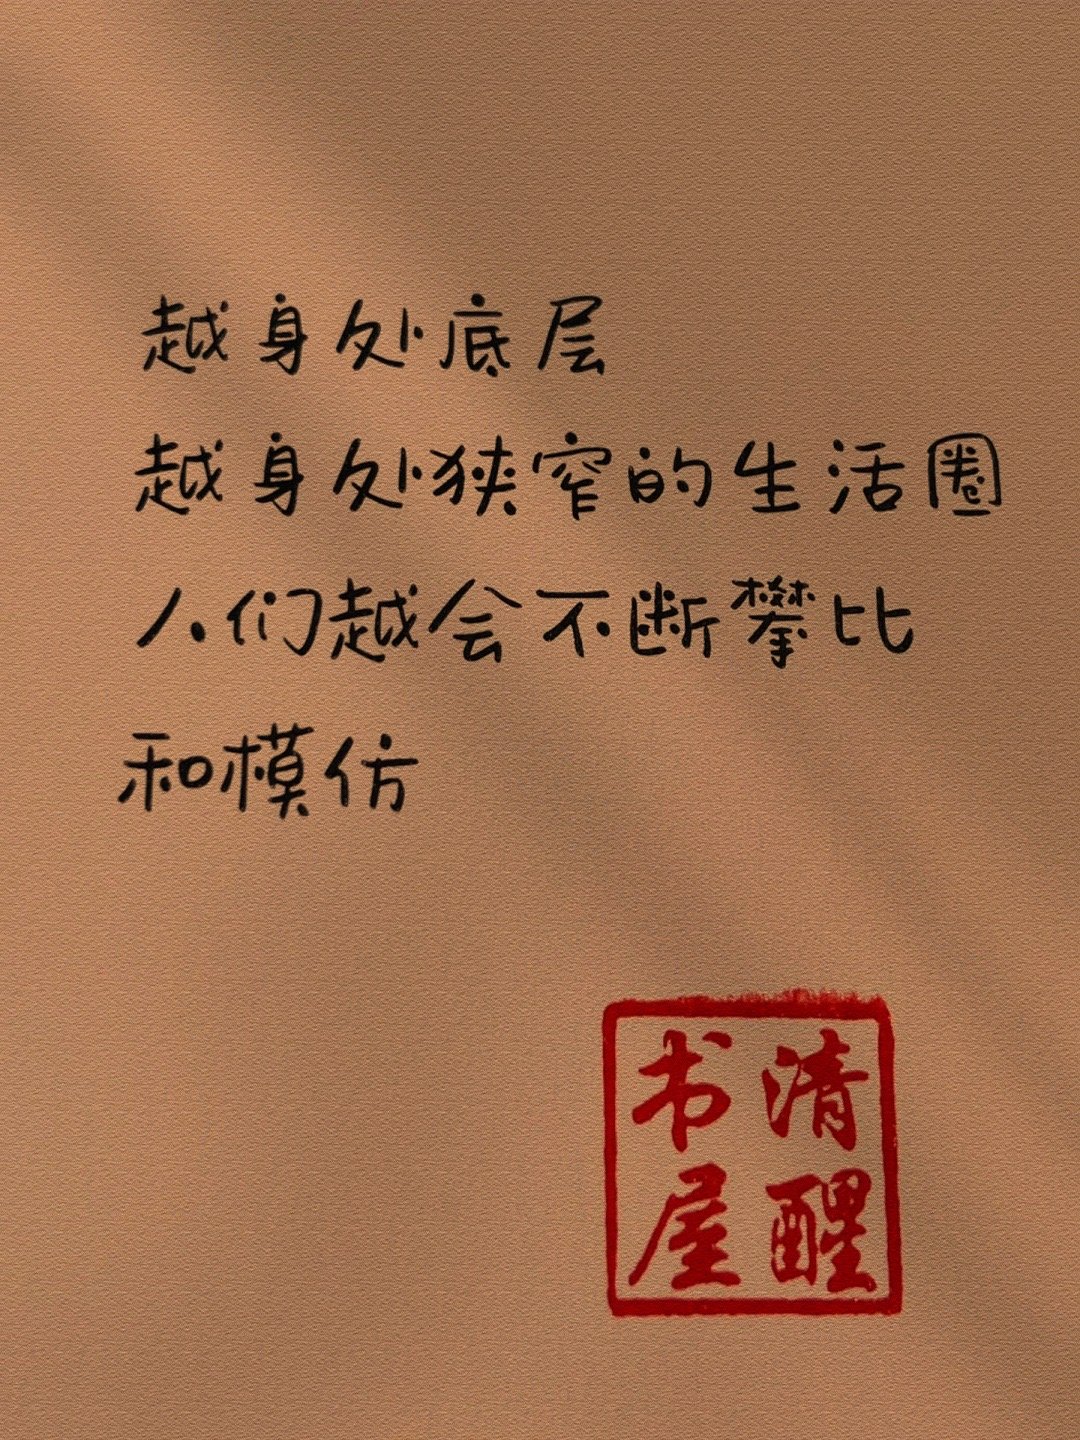 越身处底层
越身处狭窄的生活圈
人们越会不断攀比
和模仿
清醒
书屋